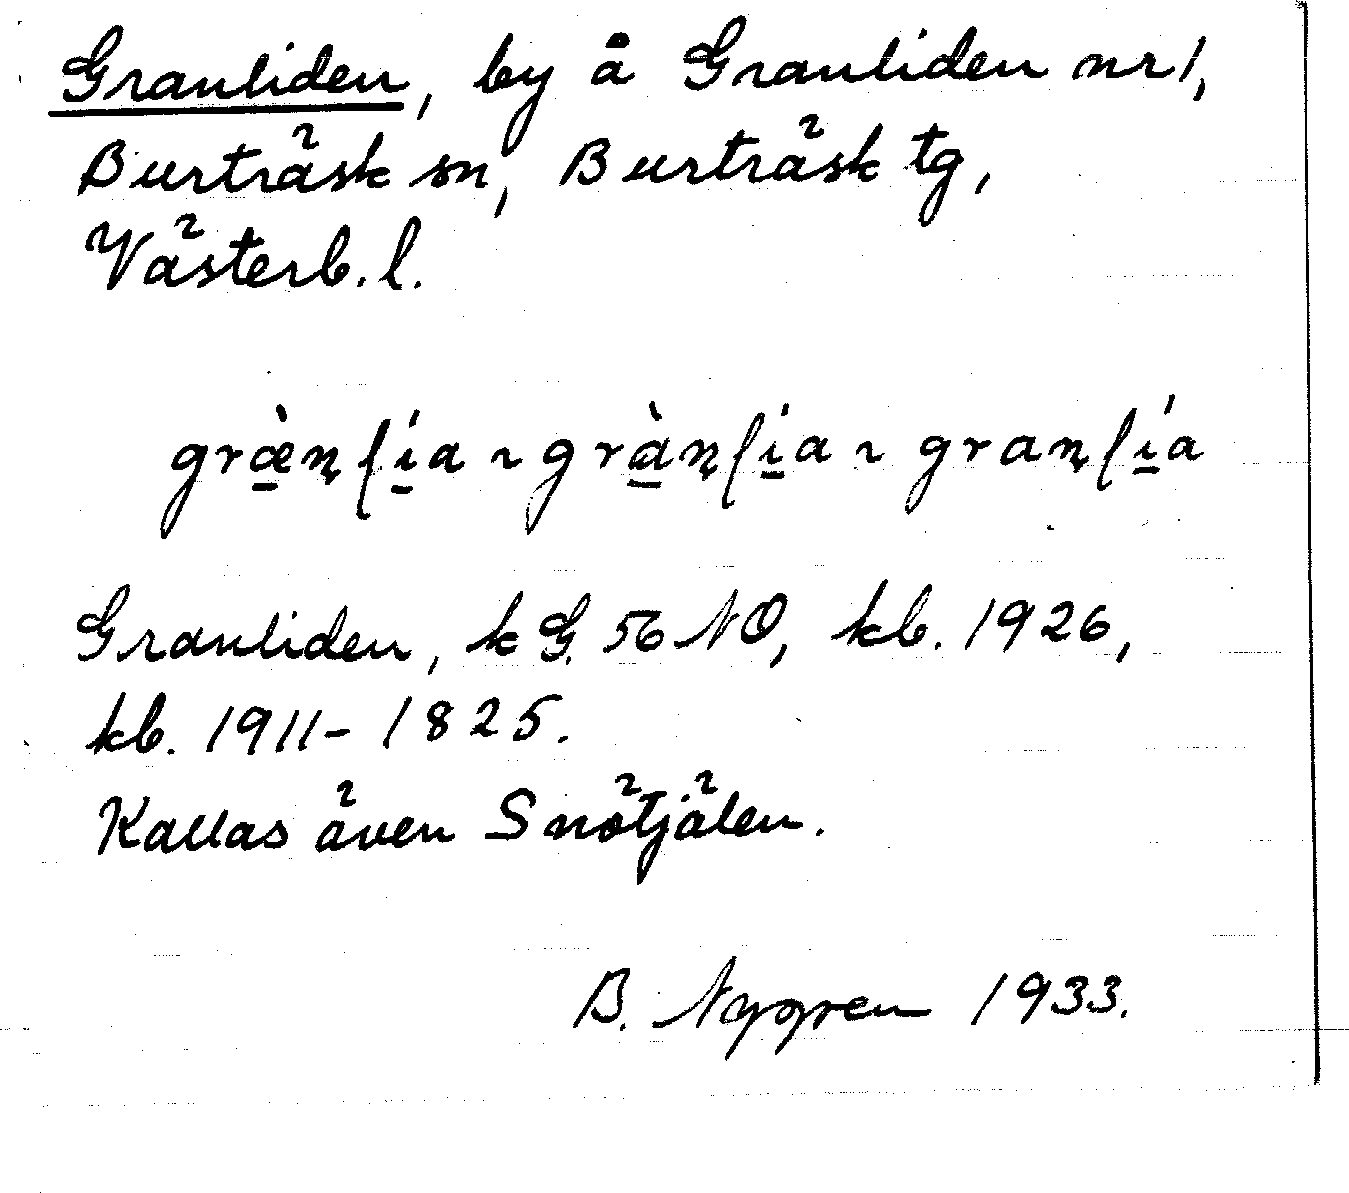 Granliden, by å Granliden nr 1,
Burträsk sn, Burträsk tg,
Västerb. l.
græ̠̀ṇʃí̠a ~ grà̠ṇʃí̠a ~ graṇʃí̠a
Granliden, k G. 56 NO, kb. 1926,
kb. 1911–1825.
Kallas även Snötjälen.
B. Nygren 1933.